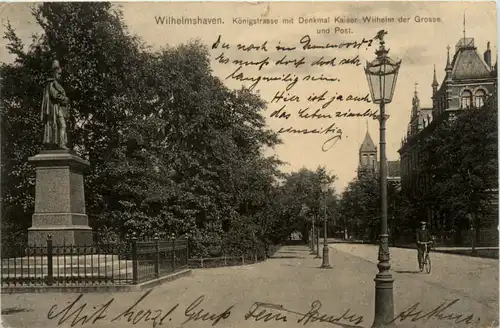 Wilhelmshaven. Königstrasse mit Denkmal Kaiser Wilhelm der Grosse
und Post.
Du noch in
Es muss dort doch sehr
langweilig sein.
Hier ist ja auch
das Leben ziemlich
einseitig
Mit herzl. Gruß Dein Bruder Arthur.